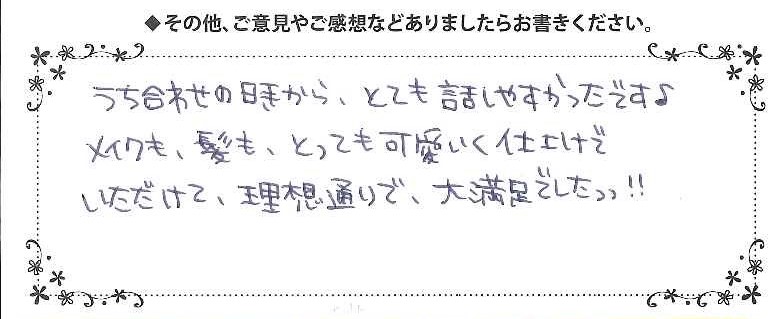 ◆その他、ご意見やご感想などありましたらお書きください。
うち合わせの時から、とても話しやすかったです♪
メイクも、髪も、とっても可愛いく仕上げで
いただけて、理想通りで、大満足でしたっっ!!